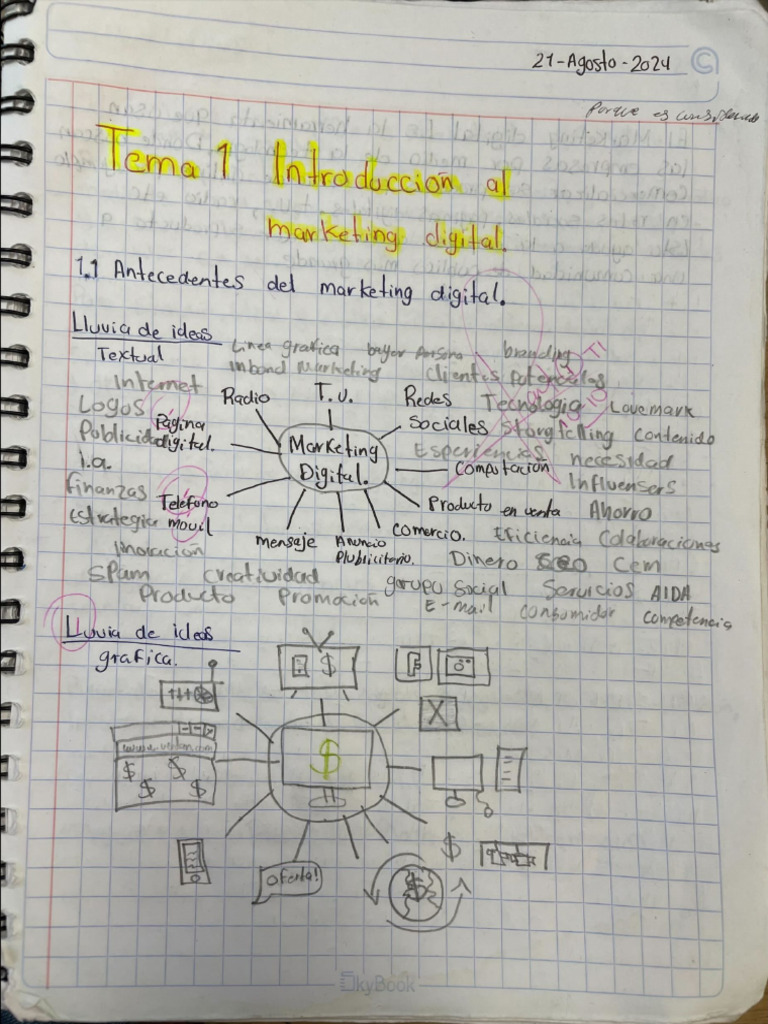 21-Agosto-2024
Porque es
Tema 1 Introducción al
marketing digital.
1.1 Antecedentes del marketing digital.
Lluvia de ideas
Textual
Linea grafica bayer Persona branding
Inbond Marketing Clientes Potenciales
Internet Radio T.V. Redes Sociales Tecnologia Lovemark
Logos Página digital. Storytelling Contenido
Publicidad Marketing Digital. Esperiencias necesidad
i.a. Computación Influensers
finanzas Teléfono movil Producto en venta Ahorro
Estrategia mensaje Anuncio Plubicitario. Comercio. Eficiencia Colaboraciones
Inovacion Dinero SEO Cem
Spam Creatividad garupo social Servicios AIDA
Producto Promoción E-mail Consumidor Competencia
Lluvia de ideas
grafica.
$
X
$
$ $
$ $
$
Oferta!
$
SkyBook